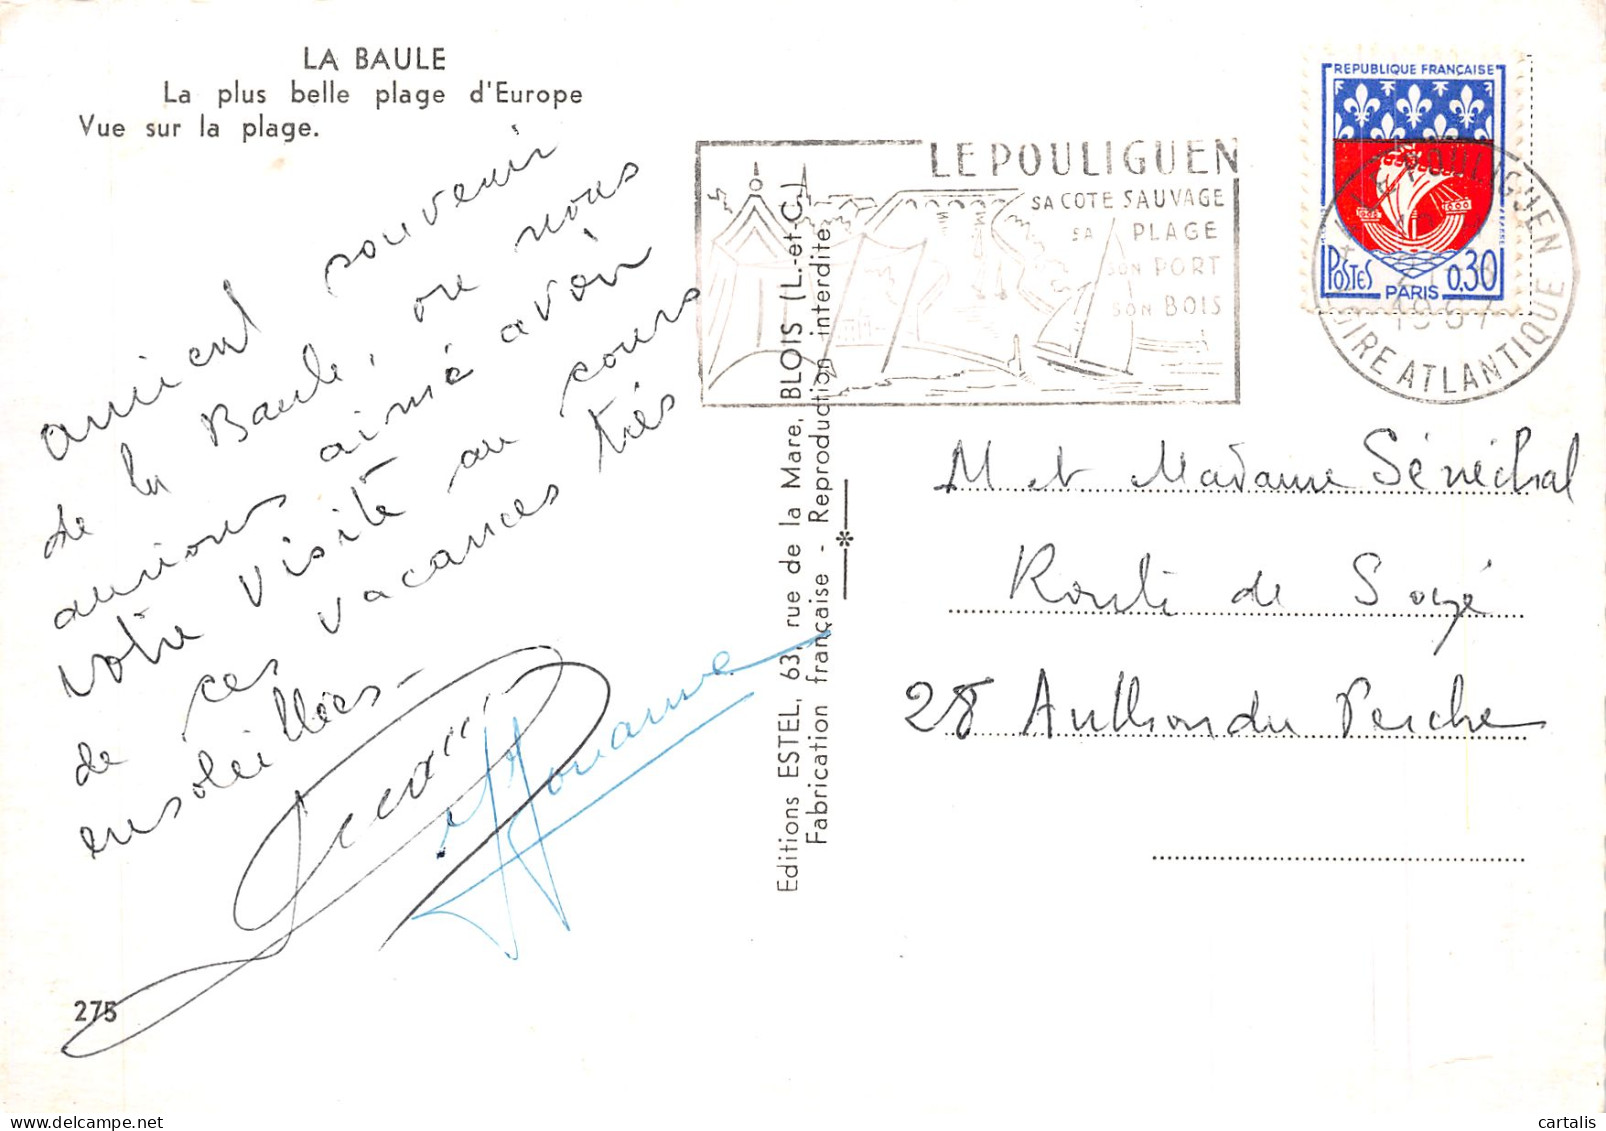 LA BAULE
La plus belle plage d'Europe
Vue sur la plage.
amical souvenir
de la Baule, ou nous
aurions aimé avoir
votre visite au cours
de ces vacances très
ensoleillées -
275
Editions ESTEL, 63, rue de la Mare, BLOIS (L.-et-C.)
Fabrication française - Reproduction interdite.
LE POULIGUEN
SA COTE SAUVAGE
SA PLAGE
SON PORT
SON BOIS
REPUBLIQUE FRANÇAISE
POSTES
PARIS
0,30
LE POULIGUEN
LOIRE ATLANTIQUE
M et Madame Sénéchal
Route de Soizé
28 Authon du Perche
cartalis